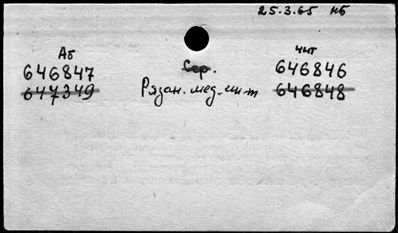 25.3.65 НБ
Аб Сер. чит
646847 646846
647349 Рязан. мед. ин-т 646848